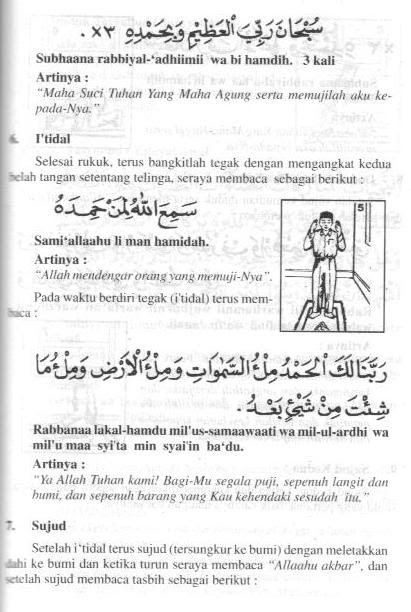 سُبْحَانَ رَبِّيَ الْعَظِيْمِ وَبِحَمْدِهِ ×٣ .
Subhaana rabbiyal-‘adhiimii wa bi hamdih. 3 kali
Artinya :
“Maha Suci Tuhan Yang Maha Agung serta memujilah aku ke-
pada-Nya.”
6. I'tidal
Selesai rukuk, terus bangkitlah tegak dengan mengangkat kedua
belah tangan setentang telinga, seraya membaca sebagai berikut :
سَمِعَ اللهُ لِمَنْ حَمِدَهُ
Sami‘allaahu li man hamidah.
Artinya :
“Allah mendengar orang yang memuji-Nya”.
Pada waktu berdiri tegak (i'tidal) terus mem-
baca :
5
رَبَّنَا لَكَ الْحَمْدُ مِلْءُ السَّمٰوَاتِ وَمِلْءُ الْأَرْضِ وَمِلْءُ مَا
شِئْتَ مِنْ شَيْءٍ بَعْدُ .
Rabbanaa lakal-hamdu mil'us-samaawaati wa mil-ul-ardhi wa
mil'u maa syi'ta min syai'in ba‘du.
Artinya :
“Ya Allah Tuhan kami! Bagi-Mu segala puji, sepenuh langit dan
bumi, dan sepenuh barang yang Kau kehendaki sesudah itu.”
7. Sujud
Setelah i‘tidal terus sujud (tersungkur ke bumi) dengan meletakkan
dahi ke bumi dan ketika turun seraya membaca “Allaahu akbar”, dan
setelah sujud membaca tasbih sebagai berikut :